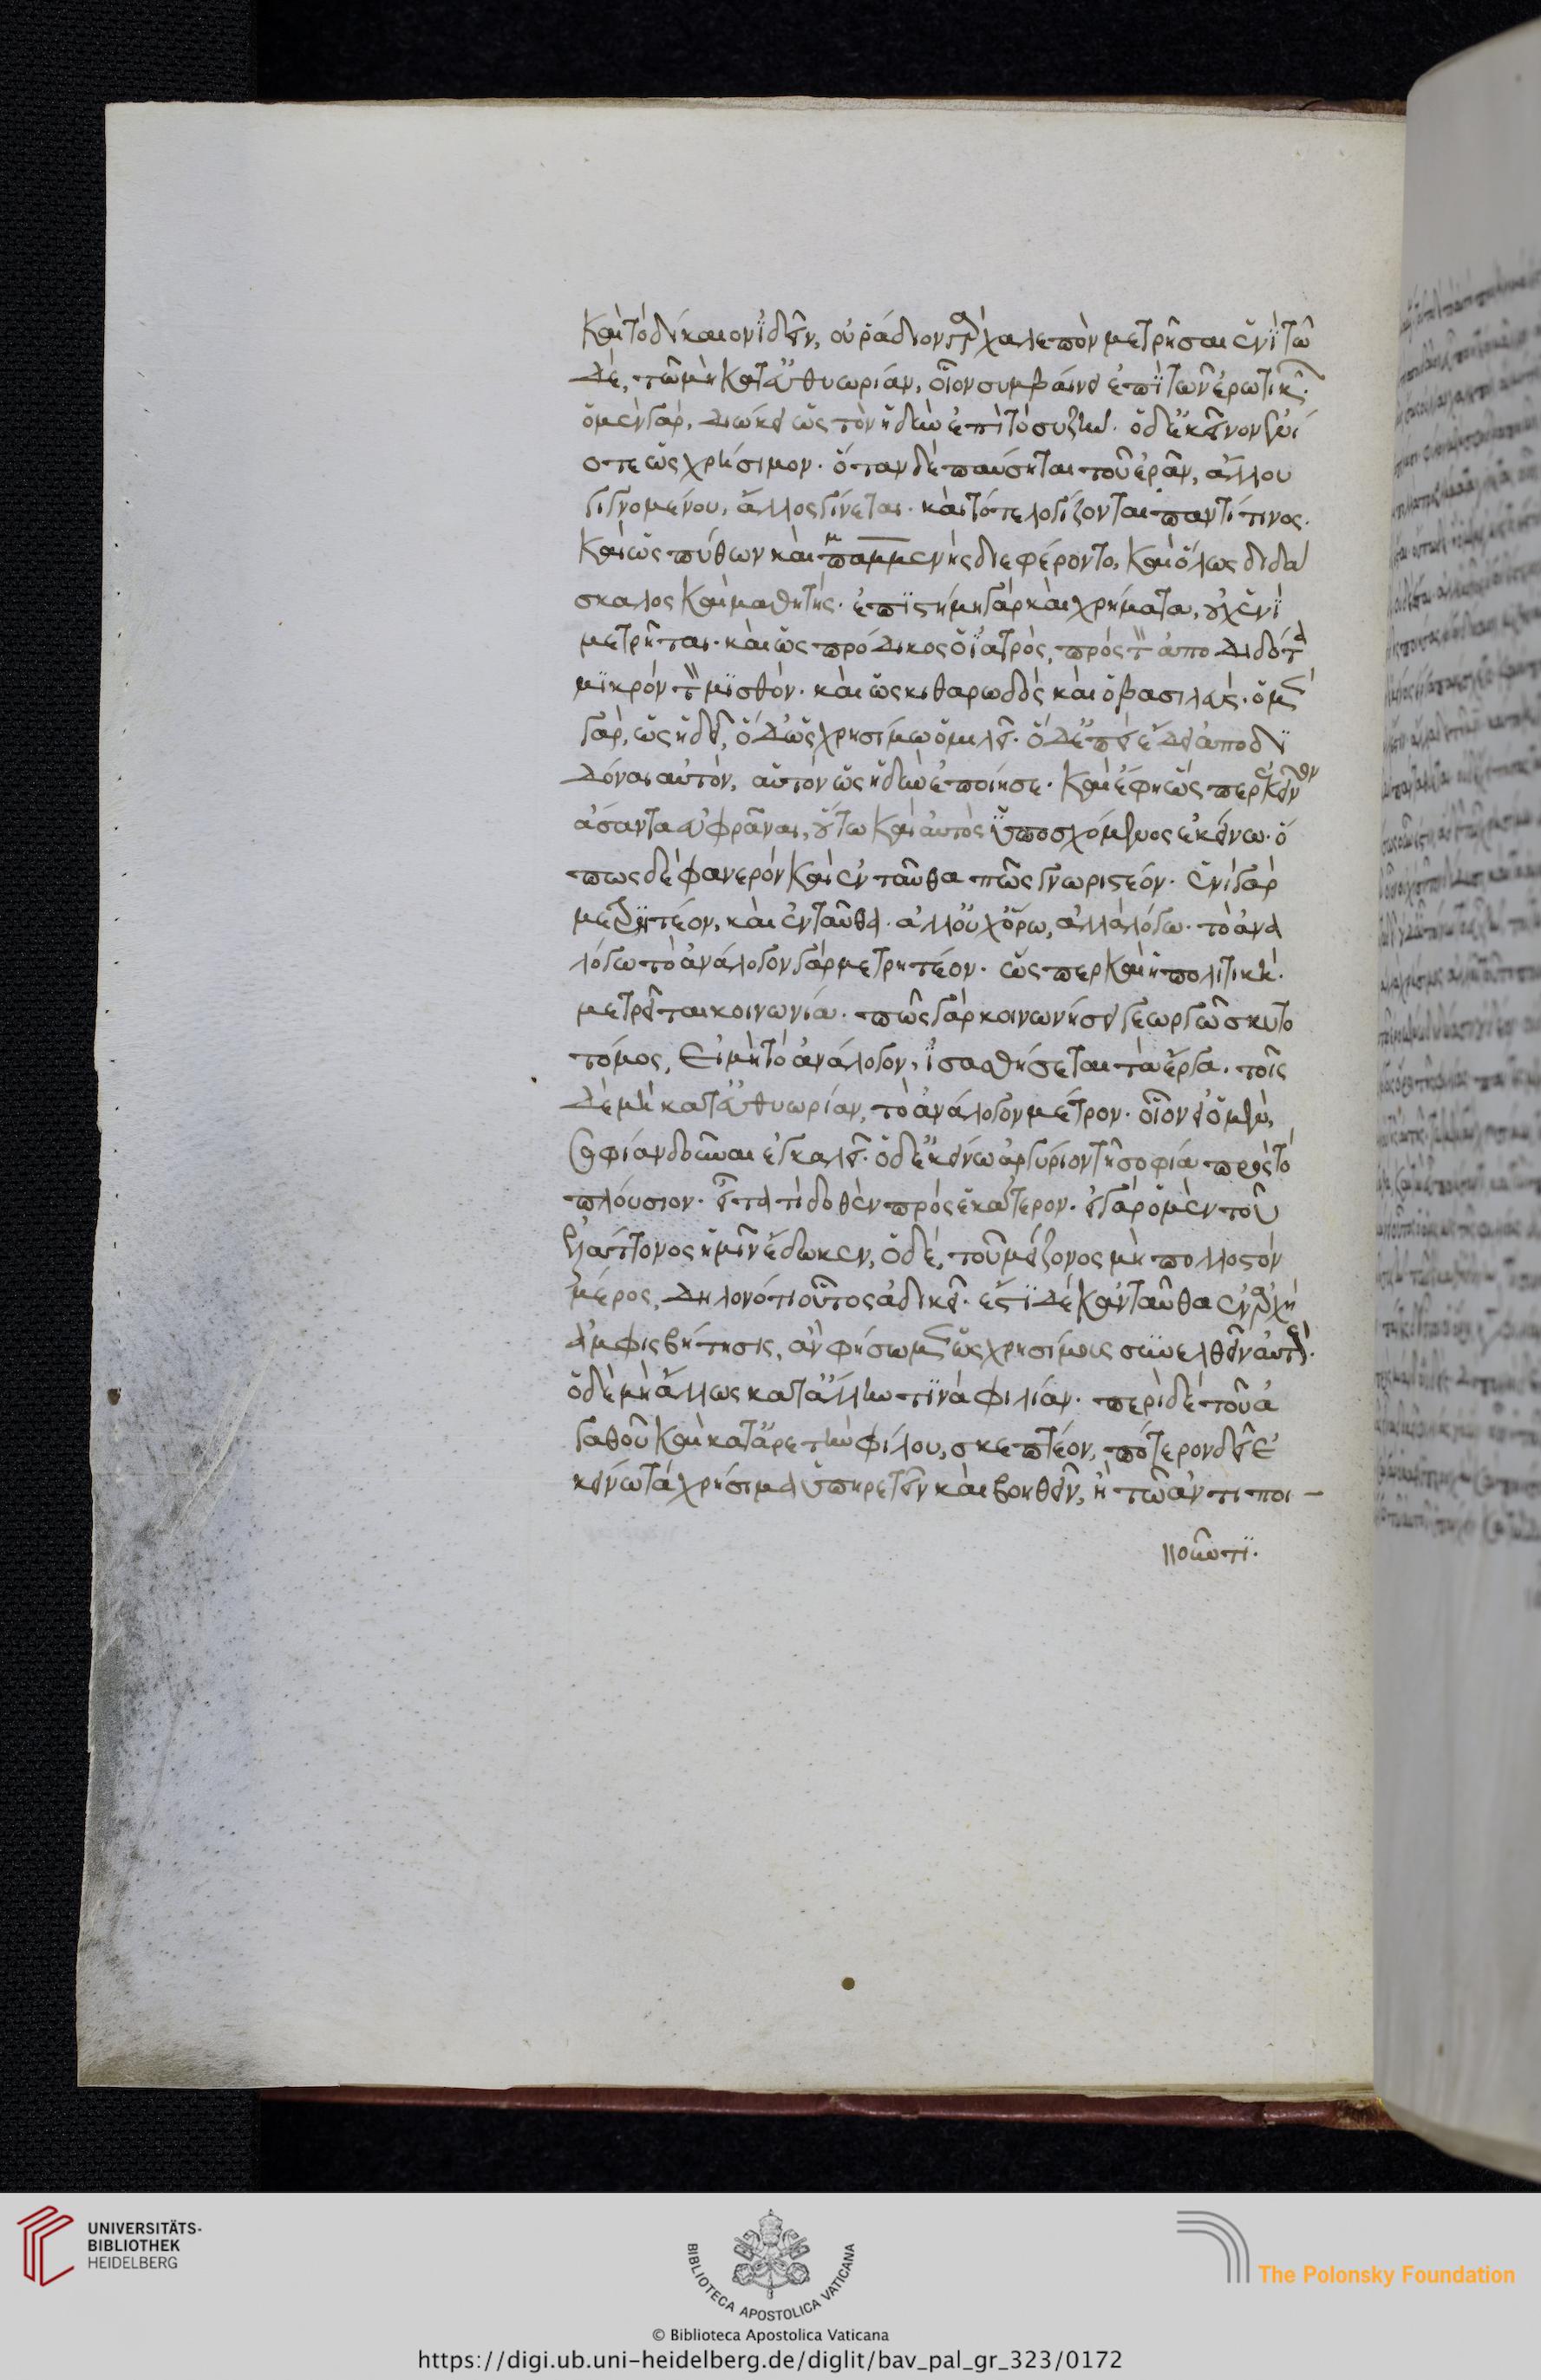 καὶ τὸ δίκαιον ἰδεῖν, οὐ ῥάδιον γὰρ χαλεπὸν μετρῆσαι ἑνῒ τῶ
δὲ, τῶ μὴ κατ᾽ εὐθυωρίαν, οἷον συμβαίνει ἐπῒ τῶν ἐρωτικῶν.
ὁ μὲν γὰρ, διώκει ὡς τὸν ἡδὺν ἐπὶ τὸ συζῆν. ὁ δ᾽ ἐκεῖνον ἐνί
οτε ὡς χρήσιμον. ὅταν δὲ παύσηται τοῦ ἐρᾶν, ἄλλου
γιγνομένου, ἄλλος γίνεται. καὶ τότε λογίζονται παντί τινος.
καὶ ὡς πύθων καὶ παμμενὴς διεφέροντο, καὶ ὅλως διδά
σκαλος καὶ μαθητής. ἐπϊστήμη γὰρ καὶ χρήματα, οὐχ ἑνῒ
μετρῆται. καὶ ὡς πρόδικος ὁ ἰατρὸς, πρὸς τὸν ἀποδιδόντα
μϊκρὸν τὸν μϊσθόν. καὶ ὡς κιθαρωδὸς καὶ ὁ βασιλεύς. ὁ μὲν
γὰρ, ὡς ἡδεῖ, ὁ δ᾽ ὡς χρησίμω ὁμιλεῖ. ὁ δ᾽ ἐπεὶ ἔδει ἀποδϊ
δόναι αὐτόν, αὑτὸν ὡς ἡδὺν ἐποίησε. καὶ ἔφη ὥσπερ ἐκεῖνον
ἄσαντα εὐφρᾶναι, οὕτω καὶ αὐτὸς ὑποσχόμενος ἐκείνω. ὅ
πως δὲ φανερὸν καὶ ἐνταῦθα πῶς γνωριστέον. ἑνὶ γὰρ
μετρητέον, καὶ ἐνταῦθα. ἀλλ᾽ οὐχ ὅρω, ἀλλὰ λόγω. τὸ ἀνα
λόγω τὸ ἀνάλογον γὰρ μετρητέον. ὥσπερ καὶ ἡ πολιτικὴ.
μετρεῖται κοινωνία. πῶς γὰρ κοινωνήσει γεωργῶ σκυτο
τόμος, εἰ μὴ τὸ ἀνάλογον, ἰσασθήσεται τὰ ἔργα. τοῖς
δὲ μὴ κατ᾽ εὐθυωρίαν, τὸ ἀνάλογον μέτρον. οἷον εἰ ὁ μὲν,
σοφίαν δοῦναι ἐγκαλεῖ. ὁ δ᾽ ἐκείνω ἀργύριον τῆ σοφία πρὸς τὸ
πλούσιον. εἶτα τί δοθὲν πρὸς ἑκάτερον. εἰ γὰρ ὁ μὲν τοῦ
ἐλάττονος ἥμισυν ἔδωκεν, ὁ δὲ, τοῦ μείζονος μὴ πολλοστὸν
μέρος, δηλονότι οὗτος ἀδικεῖ. ἔστϊ δὲ κἀνταῦθα ἐν ἀρχῆ
ἀμφισβήτησις, ἂν φήσωμεν ὡς χρησίμους συνελθεῖν αὐτοὺς.
ὁ δὲ μὴ ἄλλως κατ᾽ ἄλλην τϊνὰ φιλίαν. περὶ δὲ τοῦ ἀ
γαθοῦ καὶ κατ᾽ ἀρετὴν φίλου, σκεπτέον, πότερον δεῖ ἐ
κείνω τὰ χρήσιμα ὑπηρετεῖν καὶ βοηθεῖν, ἢ τῶ ἀντιποι
οῦντϊ.
UNIVERSITÄTS-
BIBLIOTHEK
HEIDELBERG
BIBLIOTECA APOSTOLICA VATICANA
The Polonsky Foundation
© Biblioteca Apostolica Vaticana
https://digi.ub.uni-heidelberg.de/diglit/bav_pal_gr_323/0172